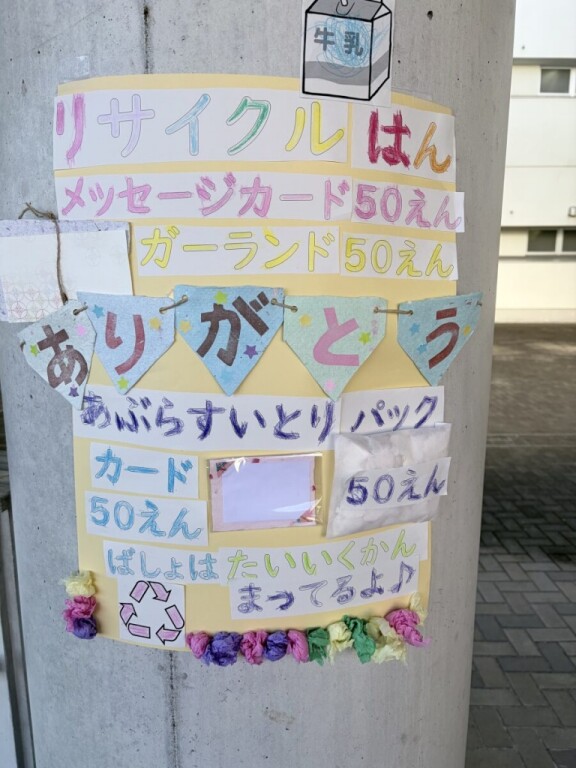 牛乳
リサイクル はん
メッセージカード 50えん
ガーランド 50えん
ありがとう
あぶらすいとり パック
カード
50えん
50えん
ばしょは たいいくかん
まってるよ♪